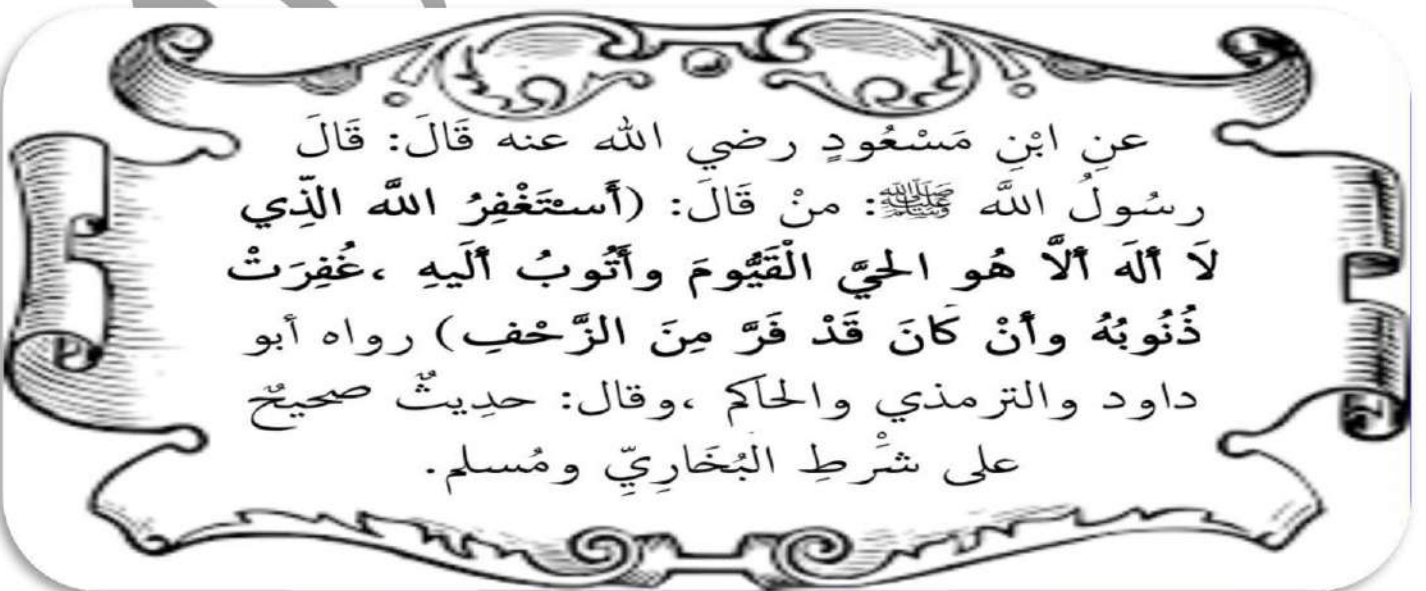 عنِ ابْنِ مَسْعُودٍ رضي الله عنه قَالَ: قَالَ
رسُولُ اللَّه ﷺ: منْ قَالَ: (أَستَغْفِرُ اللَّه الذِّي
لَا أَلَه أَلَّا هُو الحيَّ الْقَيُّومَ وأَتُوبُ أَلَيهِ ،غُفِرَتْ
ذُنُوبُهُ وأَنْ كَانَ قَدْ فَرَّ مِنَ الزَّحْفِ) رواه أبو
داود والترمذي والحاكم ،وقال: حدِيثٌ صحيحٌ
على شَرْطِ البُخَارِيِّ ومُسلم.